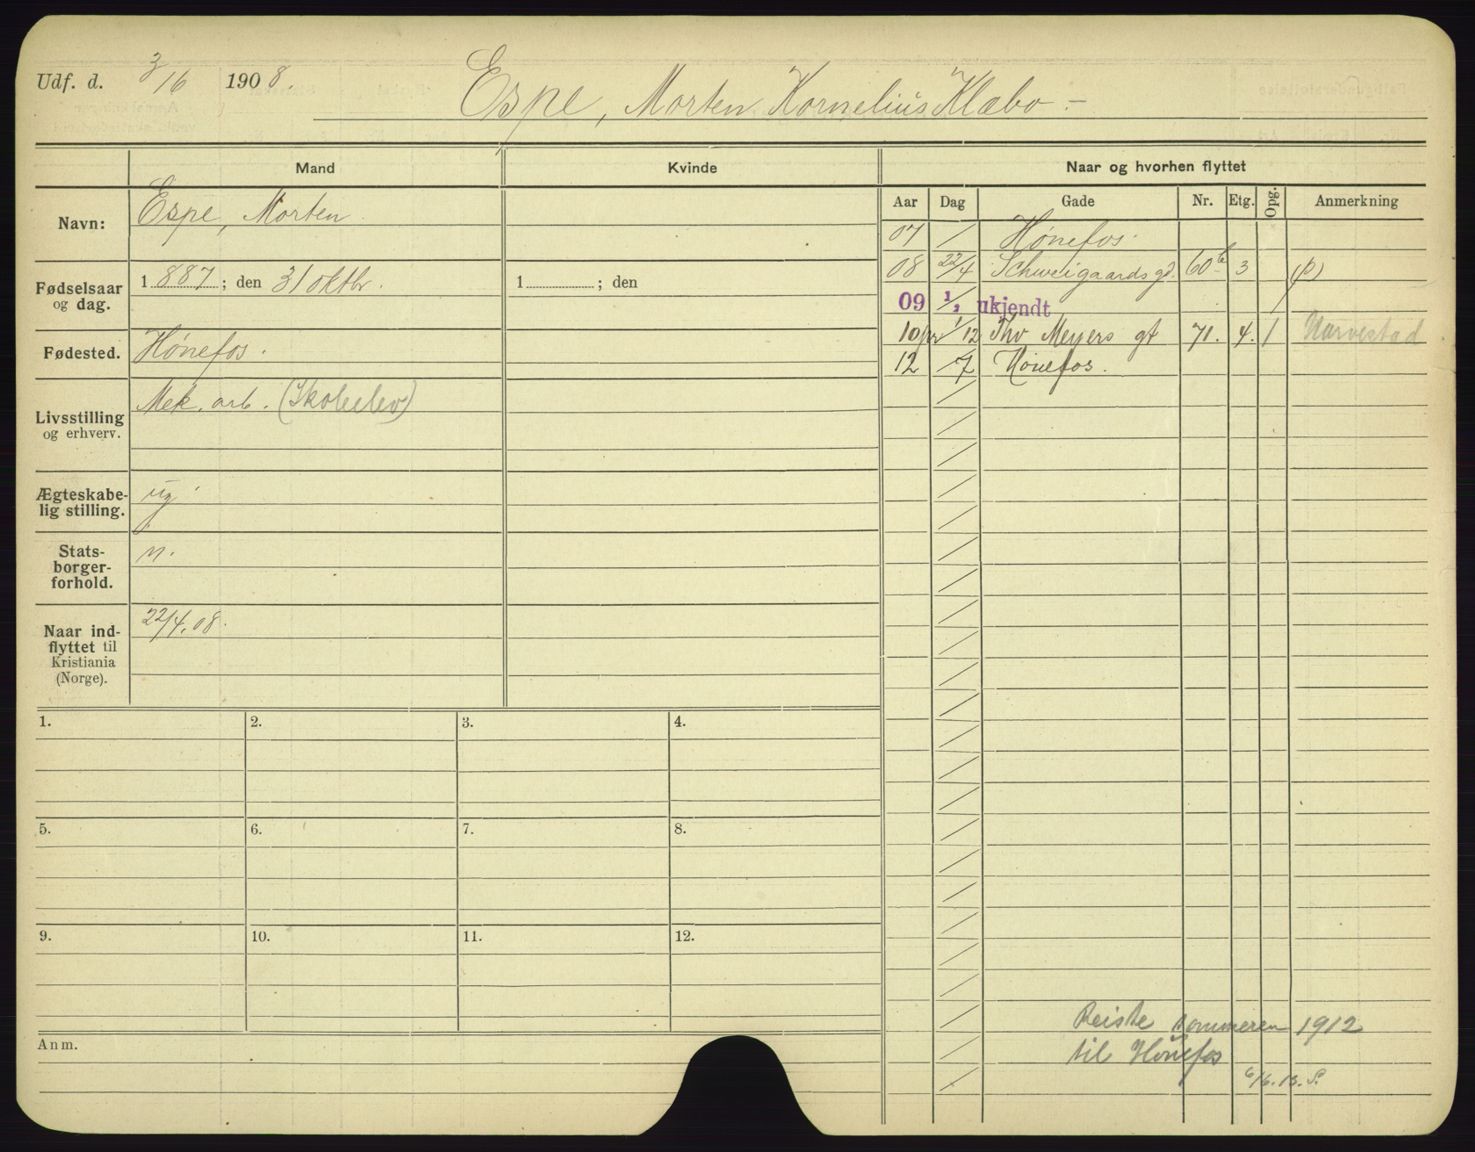 Udf. d. 3/6 1908.
Espe, Morten Kornelius Klæbo -
Mand Kvinde Naar og hvorhen flyttet
Aar Dag Gade Nr. Etg. Opg. Anmerkning
Navn: Espe, Morten.
Fødselsaar og dag. 1887; den 31 oktbr. 1 ; den
Fødested. Hønefos.
Livsstilling og erhverv. Mek. arb. (Skoleelev)
Ægteskabe-
lig stilling. ug.
Stats-
borger-
forhold. n.
Naar ind-
flyttet til
Kristiania
(Norge). 22/4.08.
07 / Hønefos.
08 22/4 Schweigaardsgd. 60b 3 (p)
09 1/2 ukjendt
10 pr 1/12 Thv Meyers gt 71. 4. 1 Harvestad
12 /7 Hønefos.
1. 2. 3. 4.
5. 6. 7. 8.
9. 10. 11. 12.
Anm.
Reiste sommeren 1912
til Hønefos
6/6.13. S.